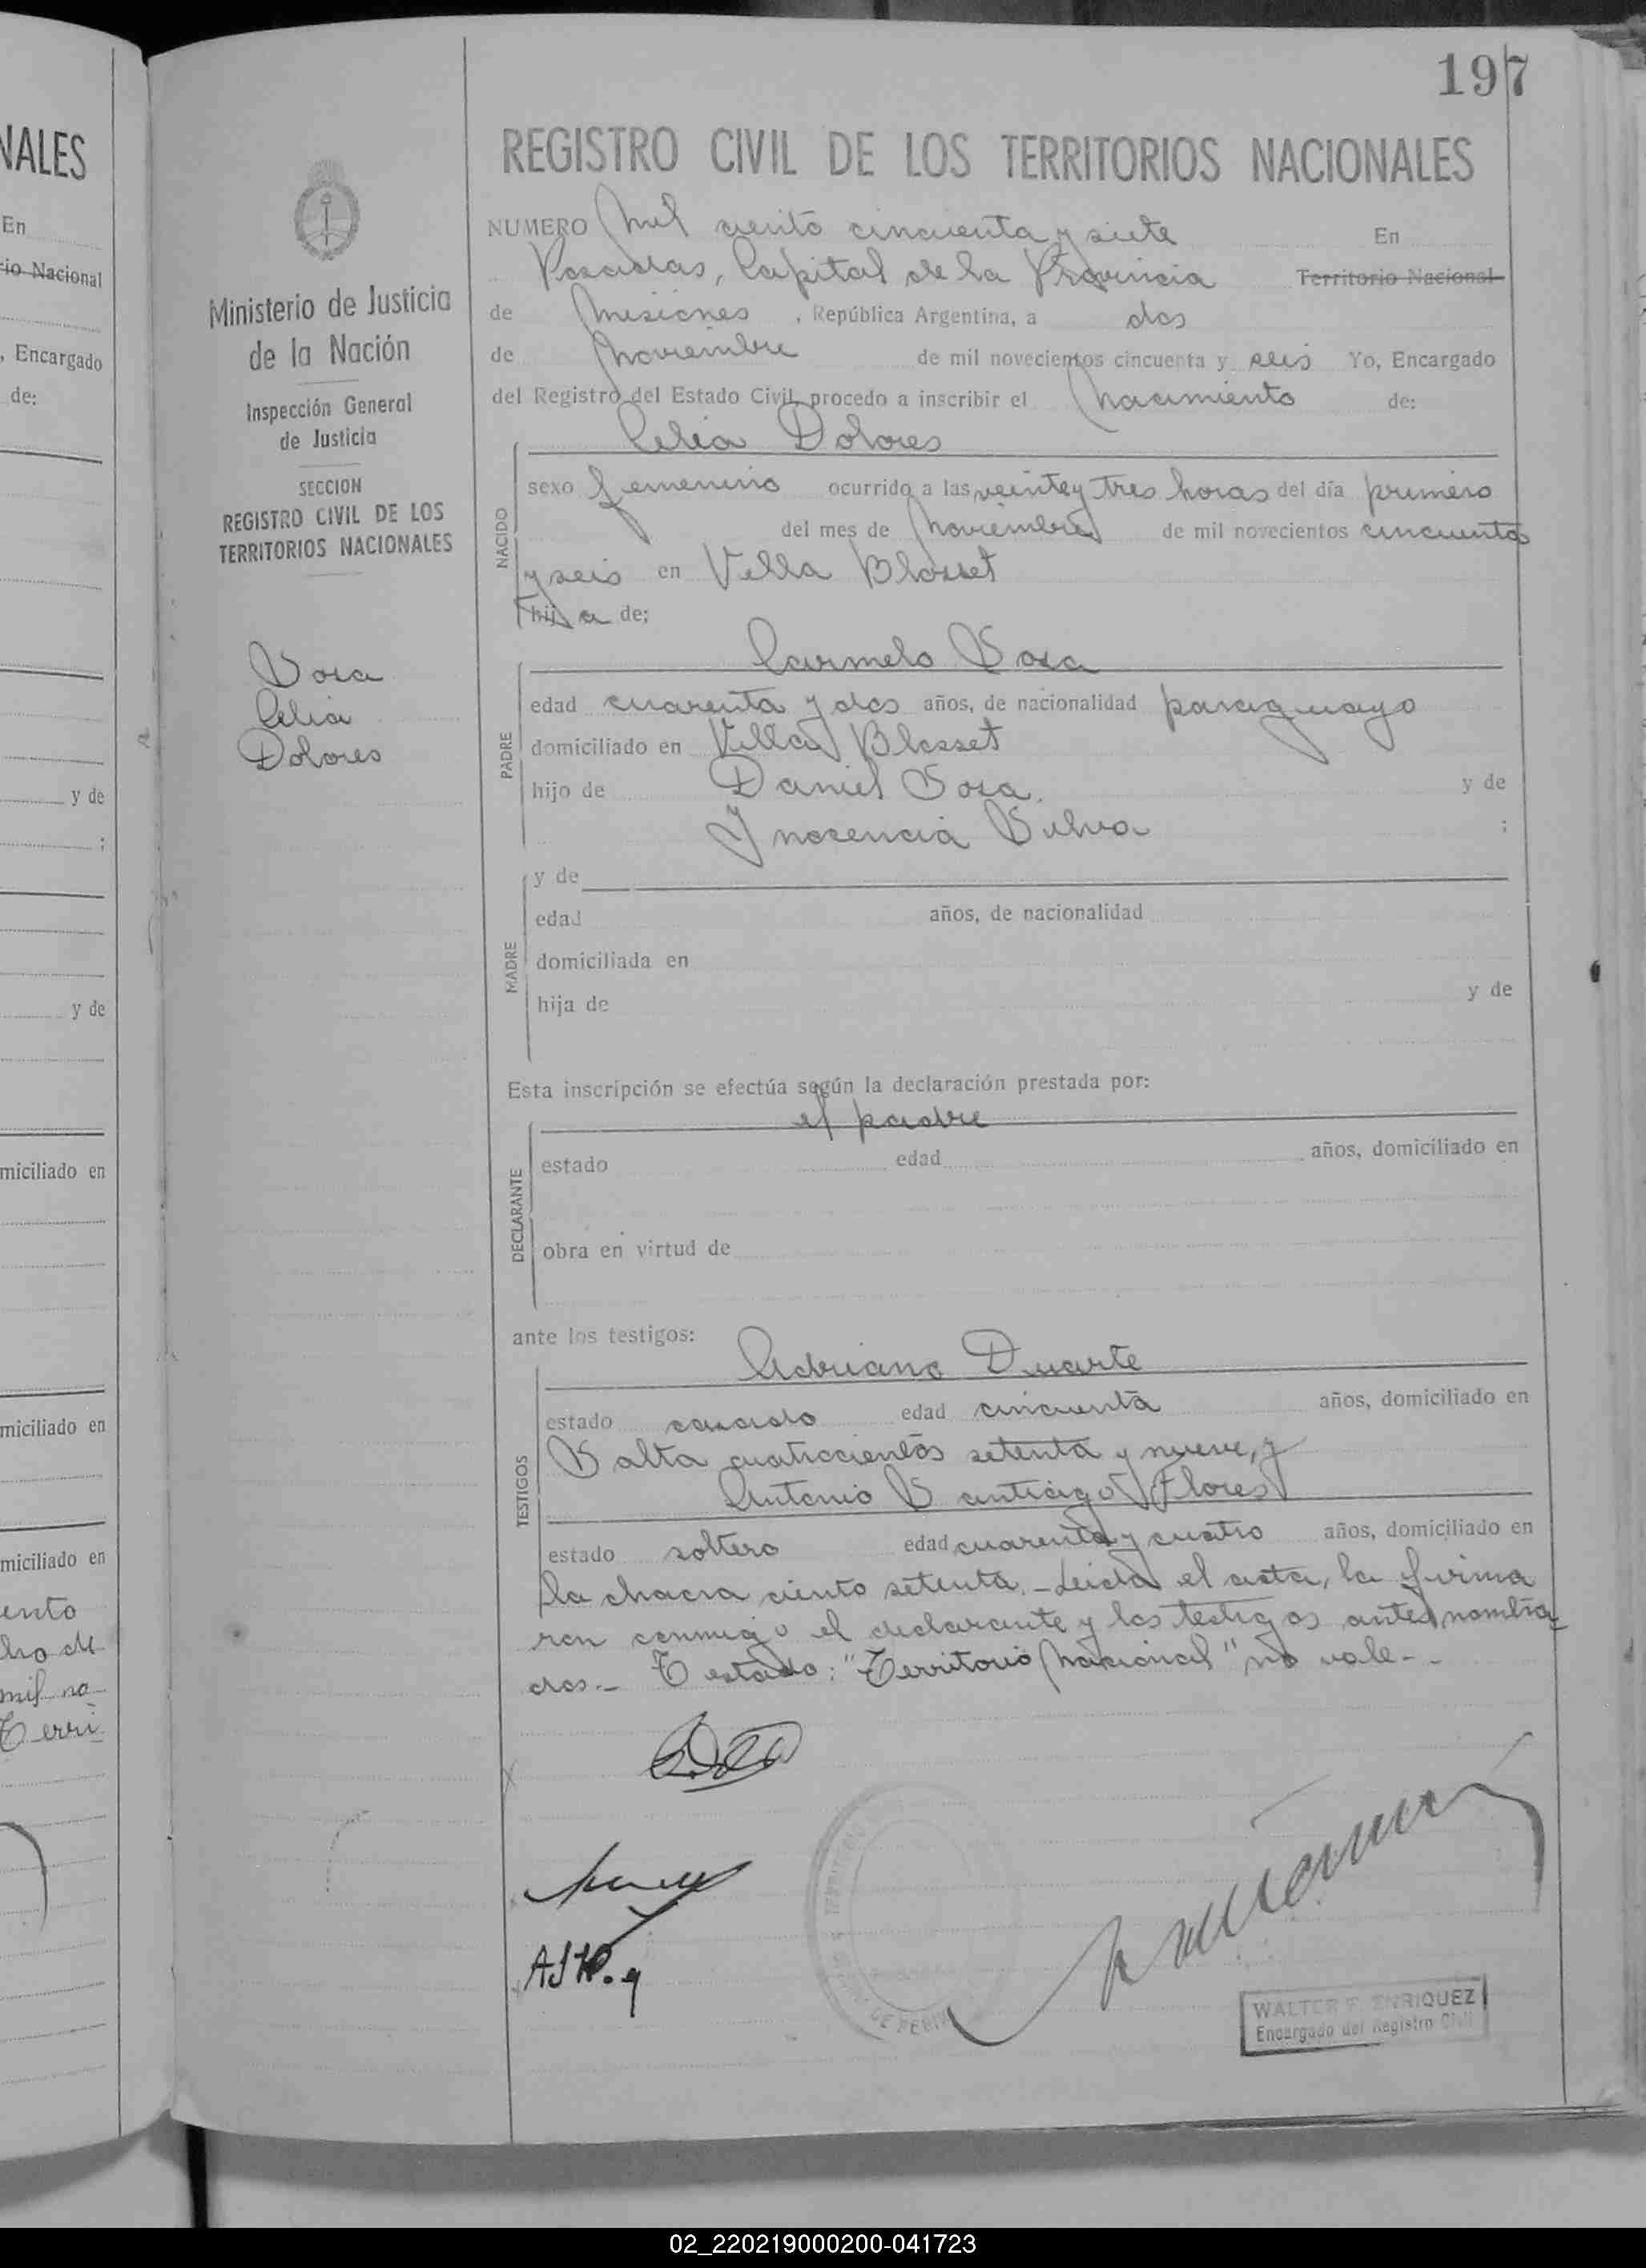 NALES
En
rio Nacional
, Encargado
de:
y de
;
y de
miciliado en
miciliado en
miciliado en
ento
mil no
Terri
197
Ministerio de Justicia
de la Nación
Inspección General
de Justicia
SECCION
REGISTRO CIVIL DE LOS
TERRITORIOS NACIONALES
Sosa
Celia
Dolores
REGISTRO CIVIL DE LOS TERRITORIOS NACIONALES
NUMERO Mil ciento cincuenta y siete En
Posadas, Capital de la Provincia Territorio Nacional
de Misiones , República Argentina, a dos
de Noviembre de mil novecientos cincuenta y seis Yo, Encargado
del Registro del Estado Civil, procedo a inscribir el Nacimiento de:
Celia Dolores
NACIDO
sexo femenino ocurrido a las veinte y tres horas del día primero
del mes de Noviembre de mil novecientos cincuenta
y seis en Villa Blosset
hija de;
PADRE
Carmelo Sosa
edad cuarenta y dos años, de nacionalidad paraguayo
domiciliado en Villa Blosset
hijo de Daniel Sosa y de
Ynosencia Silva ;
MADRE
y de
edad años, de nacionalidad
domiciliada en
hija de y de
Esta inscripción se efectúa según la declaración prestada por:
DECLARANTE
el padre
estado edad años, domiciliado en
obra en virtud de
ante los testigos:
TESTIGOS
Adriano Duarte
estado casado edad cincuenta años, domiciliado en
Salta cuatrocientos setenta y nueve, y
Antonio Santiago Flores
estado soltero edad cuarenta y cuatro años, domiciliado en
la chacra ciento setenta.- Leida el acta, la firma
ron conmigo el declarante y los testigos antes nombra
dos.- Testado: "Territorio Nacional" no vale.-
WALTER F. ENRIQUEZ
Encargado del Registro Civil
02_220219000200-041723